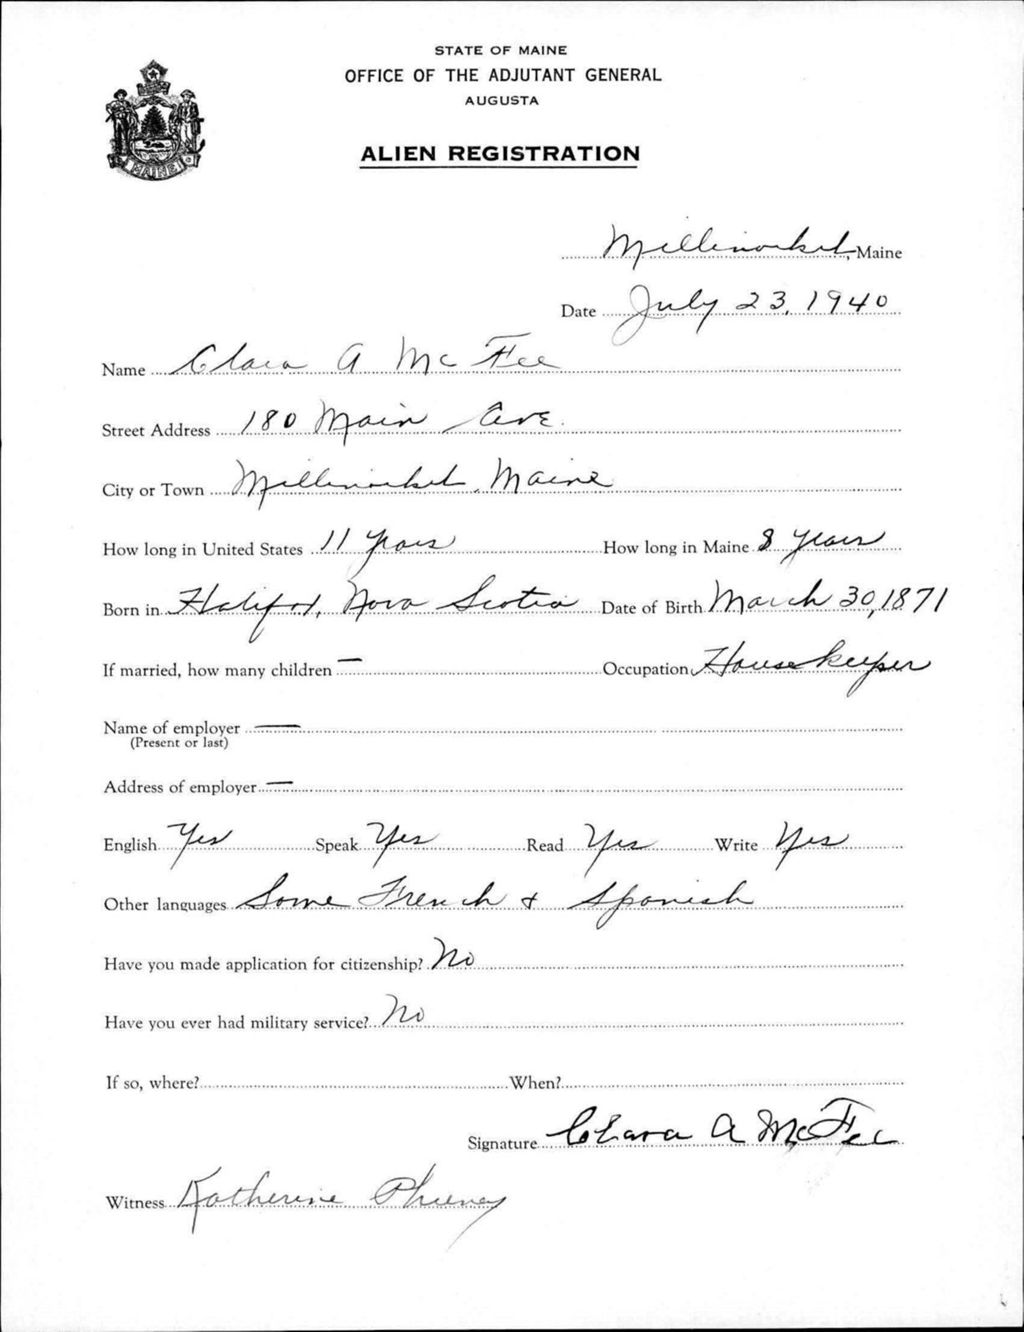 STATE OF MAINE
OFFICE OF THE ADJUTANT GENERAL
AUGUSTA
ALIEN REGISTRATION
MAINE
Millinocket, Maine
Date July 23, 1940
Name Clara A McFee
Street Address 180 Main Ave.
City or Town Millinocket, Maine
How long in United States 11 years How long in Maine 8 years
Born in Halifax, Nova Scotia Date of Birth March 30, 1871
If married, how many children — Occupation Housekeeper
Name of employer —
(Present or last)
Address of employer —
English Yes Speak Yes Read Yes Write Yes
Other languages Some French & Spanish
Have you made application for citizenship? No
Have you ever had military service? No
If so, where? When?
Signature Clara A McFee
Witness Katherine